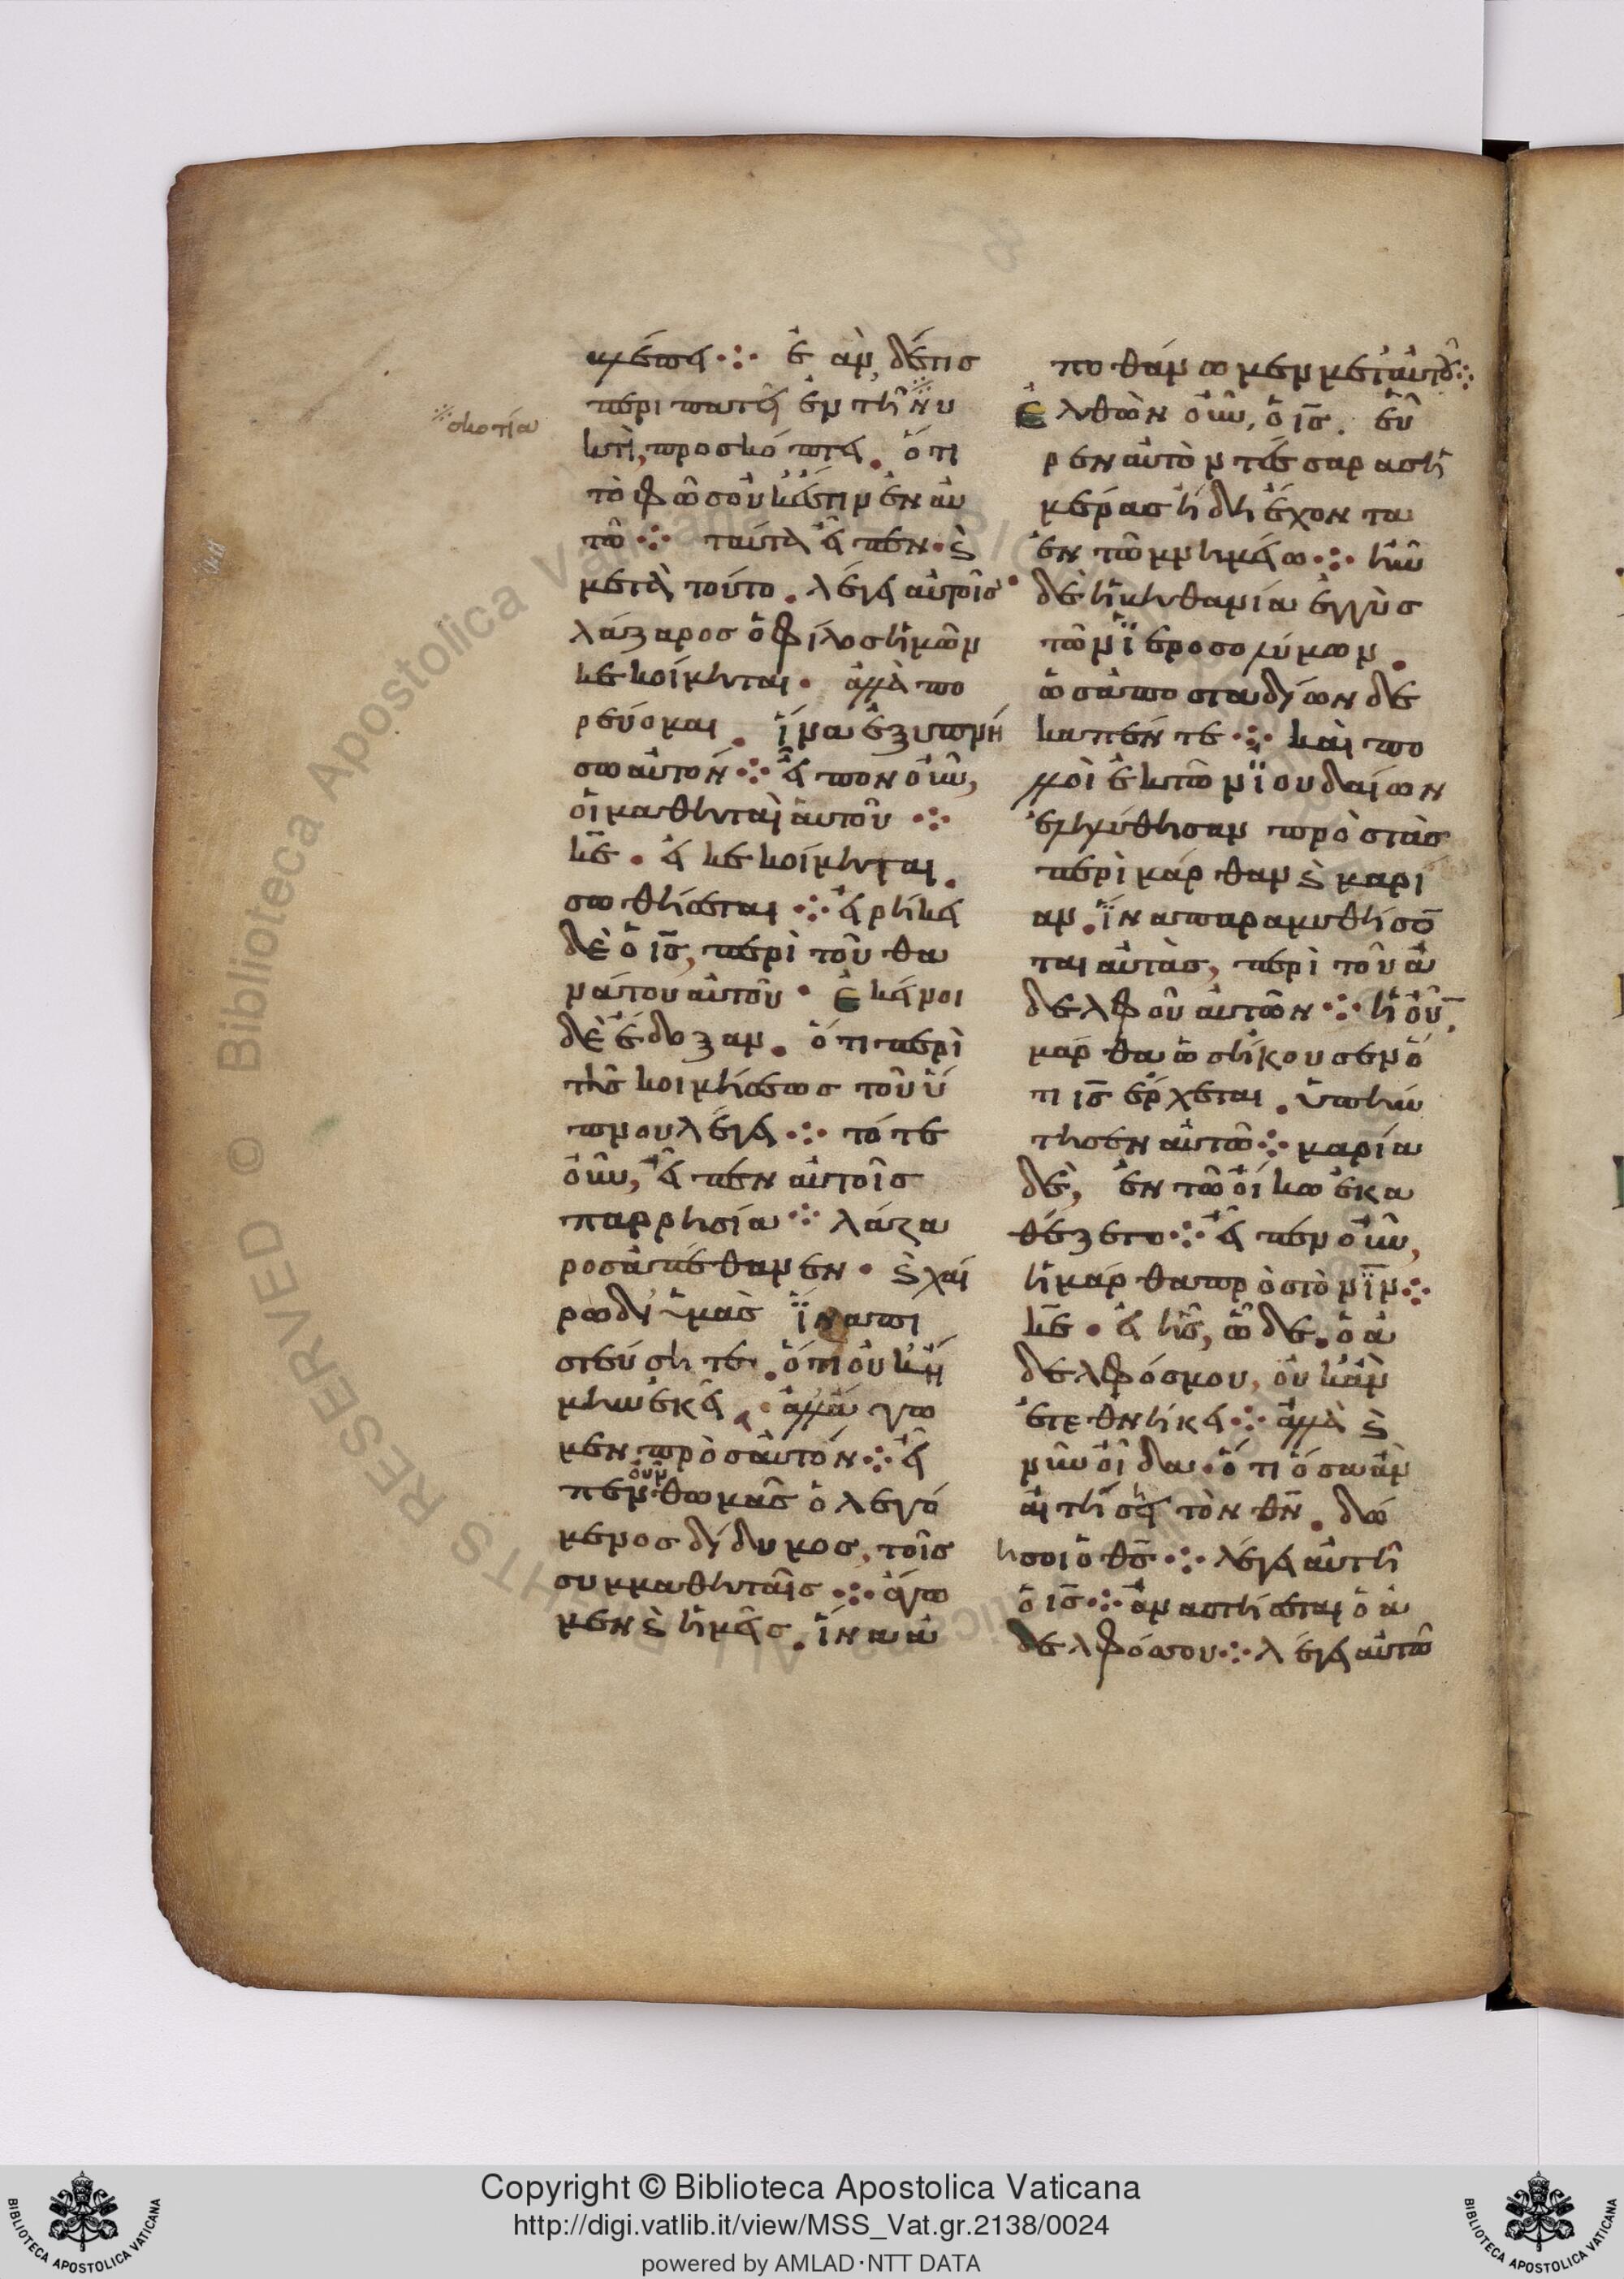 βλέπει ⁘ ἐὰν δέ τις
περιπατῆ ἐν τῆ νυ
κτὶ, προσκόπτει. ὅτι
τὸ φῶς οὐκ ἔστιν ἐν αυ
τῶ ⁘ ταῦτα εἶπεν · ϗ
μετὰ τοῦτο. λέγει αὐτοῖς ·
λάζαρος ὁ φίλος ἡμῶν
κεκοίμηται · ἀλλὰ πο
ρεύομαι. ἵνα ἐξυπνή
σω αὐτόν ⁘ εἶπον οὖν,
οἱ μαθηταὶ αὐτοῦ ⁘
κε̄ · εἰ κεκοίμηται.
σωθήσεται ⁘ εἰρήκει
δὲ ὁ ις̄, περὶ τοῦ θα
νάτου αὐτοῦ · ἐκεῖνοι
δὲ ἔδοξαν. ὅτι περὶ
τῆς κοιμήσεως τοῦ ὕ
πνου λέγει ⁘ τότε
οὖν, εἶπεν αὐτοῖς
παρρησία ⁘ λάζα
ρος ἀπέθανεν · ϗ χαί
ρω δι ὑμᾶς ἵνα πι
στεύσητε. ὅτι οὐκ ἤ
μην ἐκεῖ. ἀλλ ἄγω
μεν πρὸς αὐτόν ⁘ εἶ
πεν οὖν θωμᾶς ὁ λεγό
μενος δίδυμος, τοῖς
συμμαθηταῖς ⁘ ἄγω
μεν ϗ ἡμεῖς. ἵνα ἀ
⁘ σκοτία
ποθάνωμεν μετ αὐτοῦ ⁘
ἐλθὼν οὖν, ὁ ις̄. εὗ
ρεν αὐτὸν τέσσαρας ἡ
μέρας ἤδη ἔχοντα
ἐν τῶ μνημείω ⁘ ἦν
δὲ ἡ βηθανία ἐγγὺς
τῶν ἱεροσολύμων.
ὡς ἀπο σταδίων δε
καπέντε ⁘ καὶ πο
λλοὶ ἐκ τῶν ϊουδαίων
ἐληλύθησαν πρὸς τὰς
περὶ μάρθαν ϗ μαρί
αμ. ἵνα παραμυθήσο̄
ται αὐτὰς, περὶ τοῦ ἀ
δελφοῦ αὐτῶν ⁘ ἡ οὖ̄,
μάρθα ὡς ἤκουσεν ὅ
τι ις̄ ἔρχεται. ὑπήν
τησεν αὐτῶ ⁘ μαρία
δὲ, ἐν τῶ οἴκω ἐκα
θέζετο ⁘ εἶπεν οὖν,
ἡ μάρθα πρὸς τὸν ιν̄ ⁘
κε̄ · εἰ ἦς, ὧδε. ὁ ἀ
δελφός μου, οὐκ ἂν
ἐτεθνήκει ⁘ ἀλλὰ ϗ
νῦν οἶδα · ὅτι ὅσα ἂν
αἰτήση τὸν θν̄. δώ
σει σοι ὁ θς̄ ⁘ λέγει αὐτῆ
ὁ ις̄ ⁘ ἀναστήσεται ὁ ἀ
δελφός σου ⁘ λέγει αὐτῶ
Copyright © Biblioteca Apostolica Vaticana
http://digi.vatlib.it/view/MSS_Vat.gr.2138/0024
powered by AMLAD·NTT DATA
BIBLIOTECA APOSTOLICA VATICANA
BIBLIOTECA APOSTOLICA VATICANA